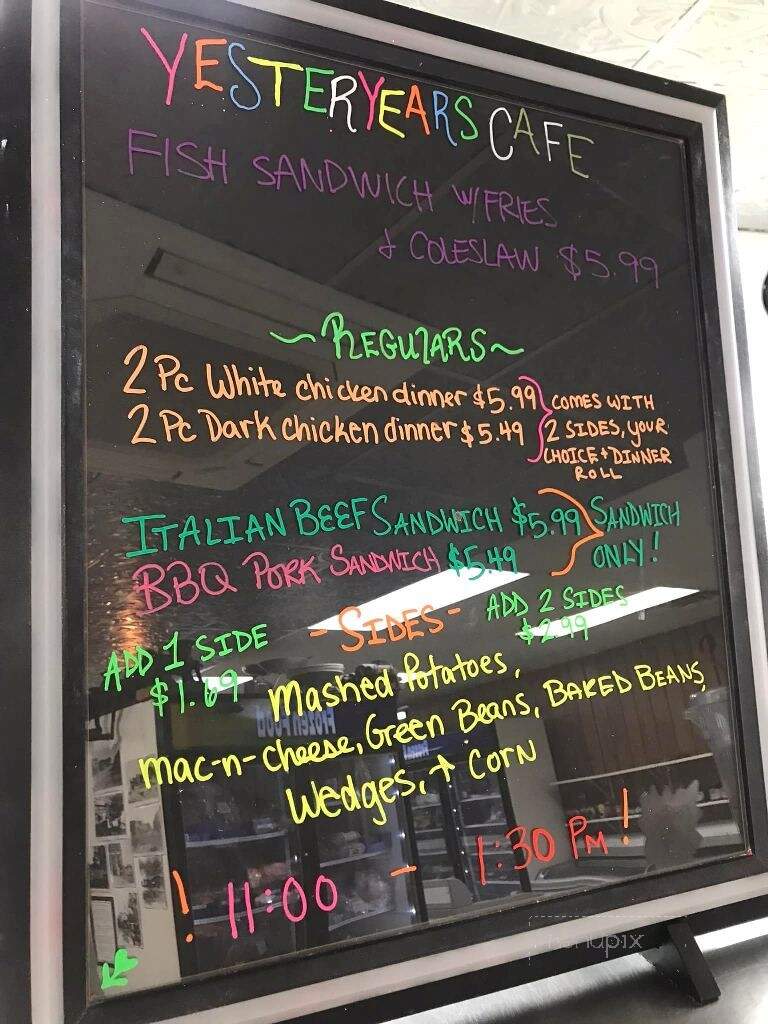 YESTERYEARS CAFE
FISH SANDWICH W/FRIES
& COLESLAW $5.99
~REGULARS~
2 Pc White chicken dinner $5.99
2 Pc Dark chicken dinner $5.49
COMES WITH
2 SIDES, YOUR
CHOICE + DINNER
ROLL
ITALIAN BEEF SANDWICH $5.99
BBQ PORK SANDWICH $5.49
SANDWICH
ONLY!
ADD 1 SIDE
$1.69
- SIDES -
ADD 2 SIDES
$2.99
Mashed Potatoes,
Mac-n-cheese, Green Beans, BAKED BEANS,
Wedges, + CORN
! 11:00 - 1:30 PM !
FROZEN FOOD
menupix